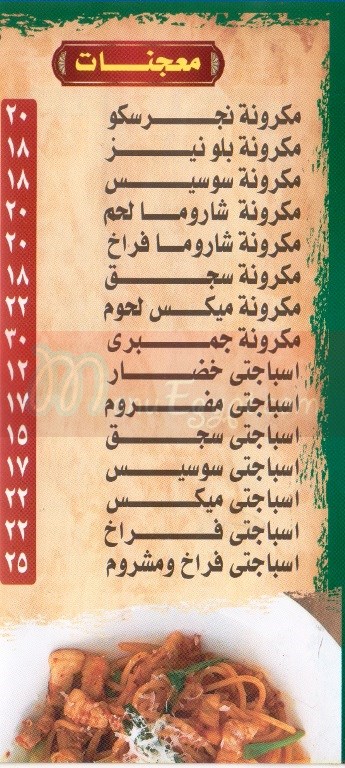 معجنات
مكرونة نجرسكو ٢٠
مكرونة بلونيز ١٨
مكرونة سوسيس ١٨
مكرونة شاروما لحم ٢٠
مكرونة شاروما فراخ ٢٠
مكرونة سجق ١٨
مكرونة ميكس لحوم ٢٢
مكرونة جمبرى ٣٠
اسباجتى خضار ١٢
اسباجتى مشروم ١٧
اسباجتى سجق ١٥
اسباجتى سوسيس ١٧
اسباجتى ميكس ٢٢
اسباجتى فراخ ٢٢
اسباجتى فراخ ومشروم ٢٥
MenuEgypt.com